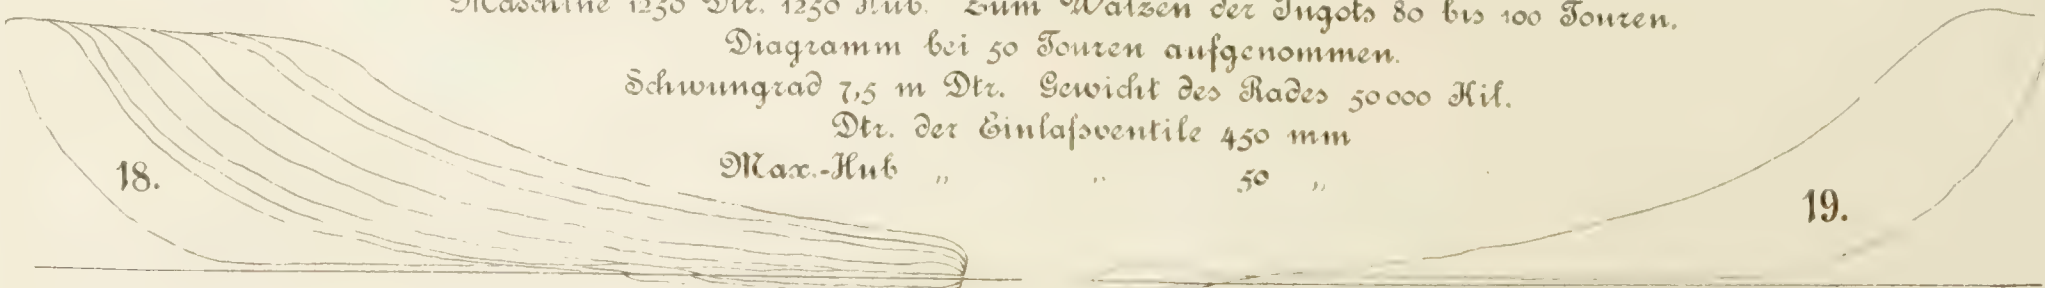 Maschine 1250 Dtr. 1250 Hub. Zum Walzen der Ingots 80 bis 100 Touren.
Diagramm bei 50 Touren aufgenommen.
Schwungrad 7,5 m Dtr. Gewicht des Rades 50000 Kil.
Dtr. der Einlaſsventile 450 mm
Max.-Hub „ „ 50 „
18.
19.